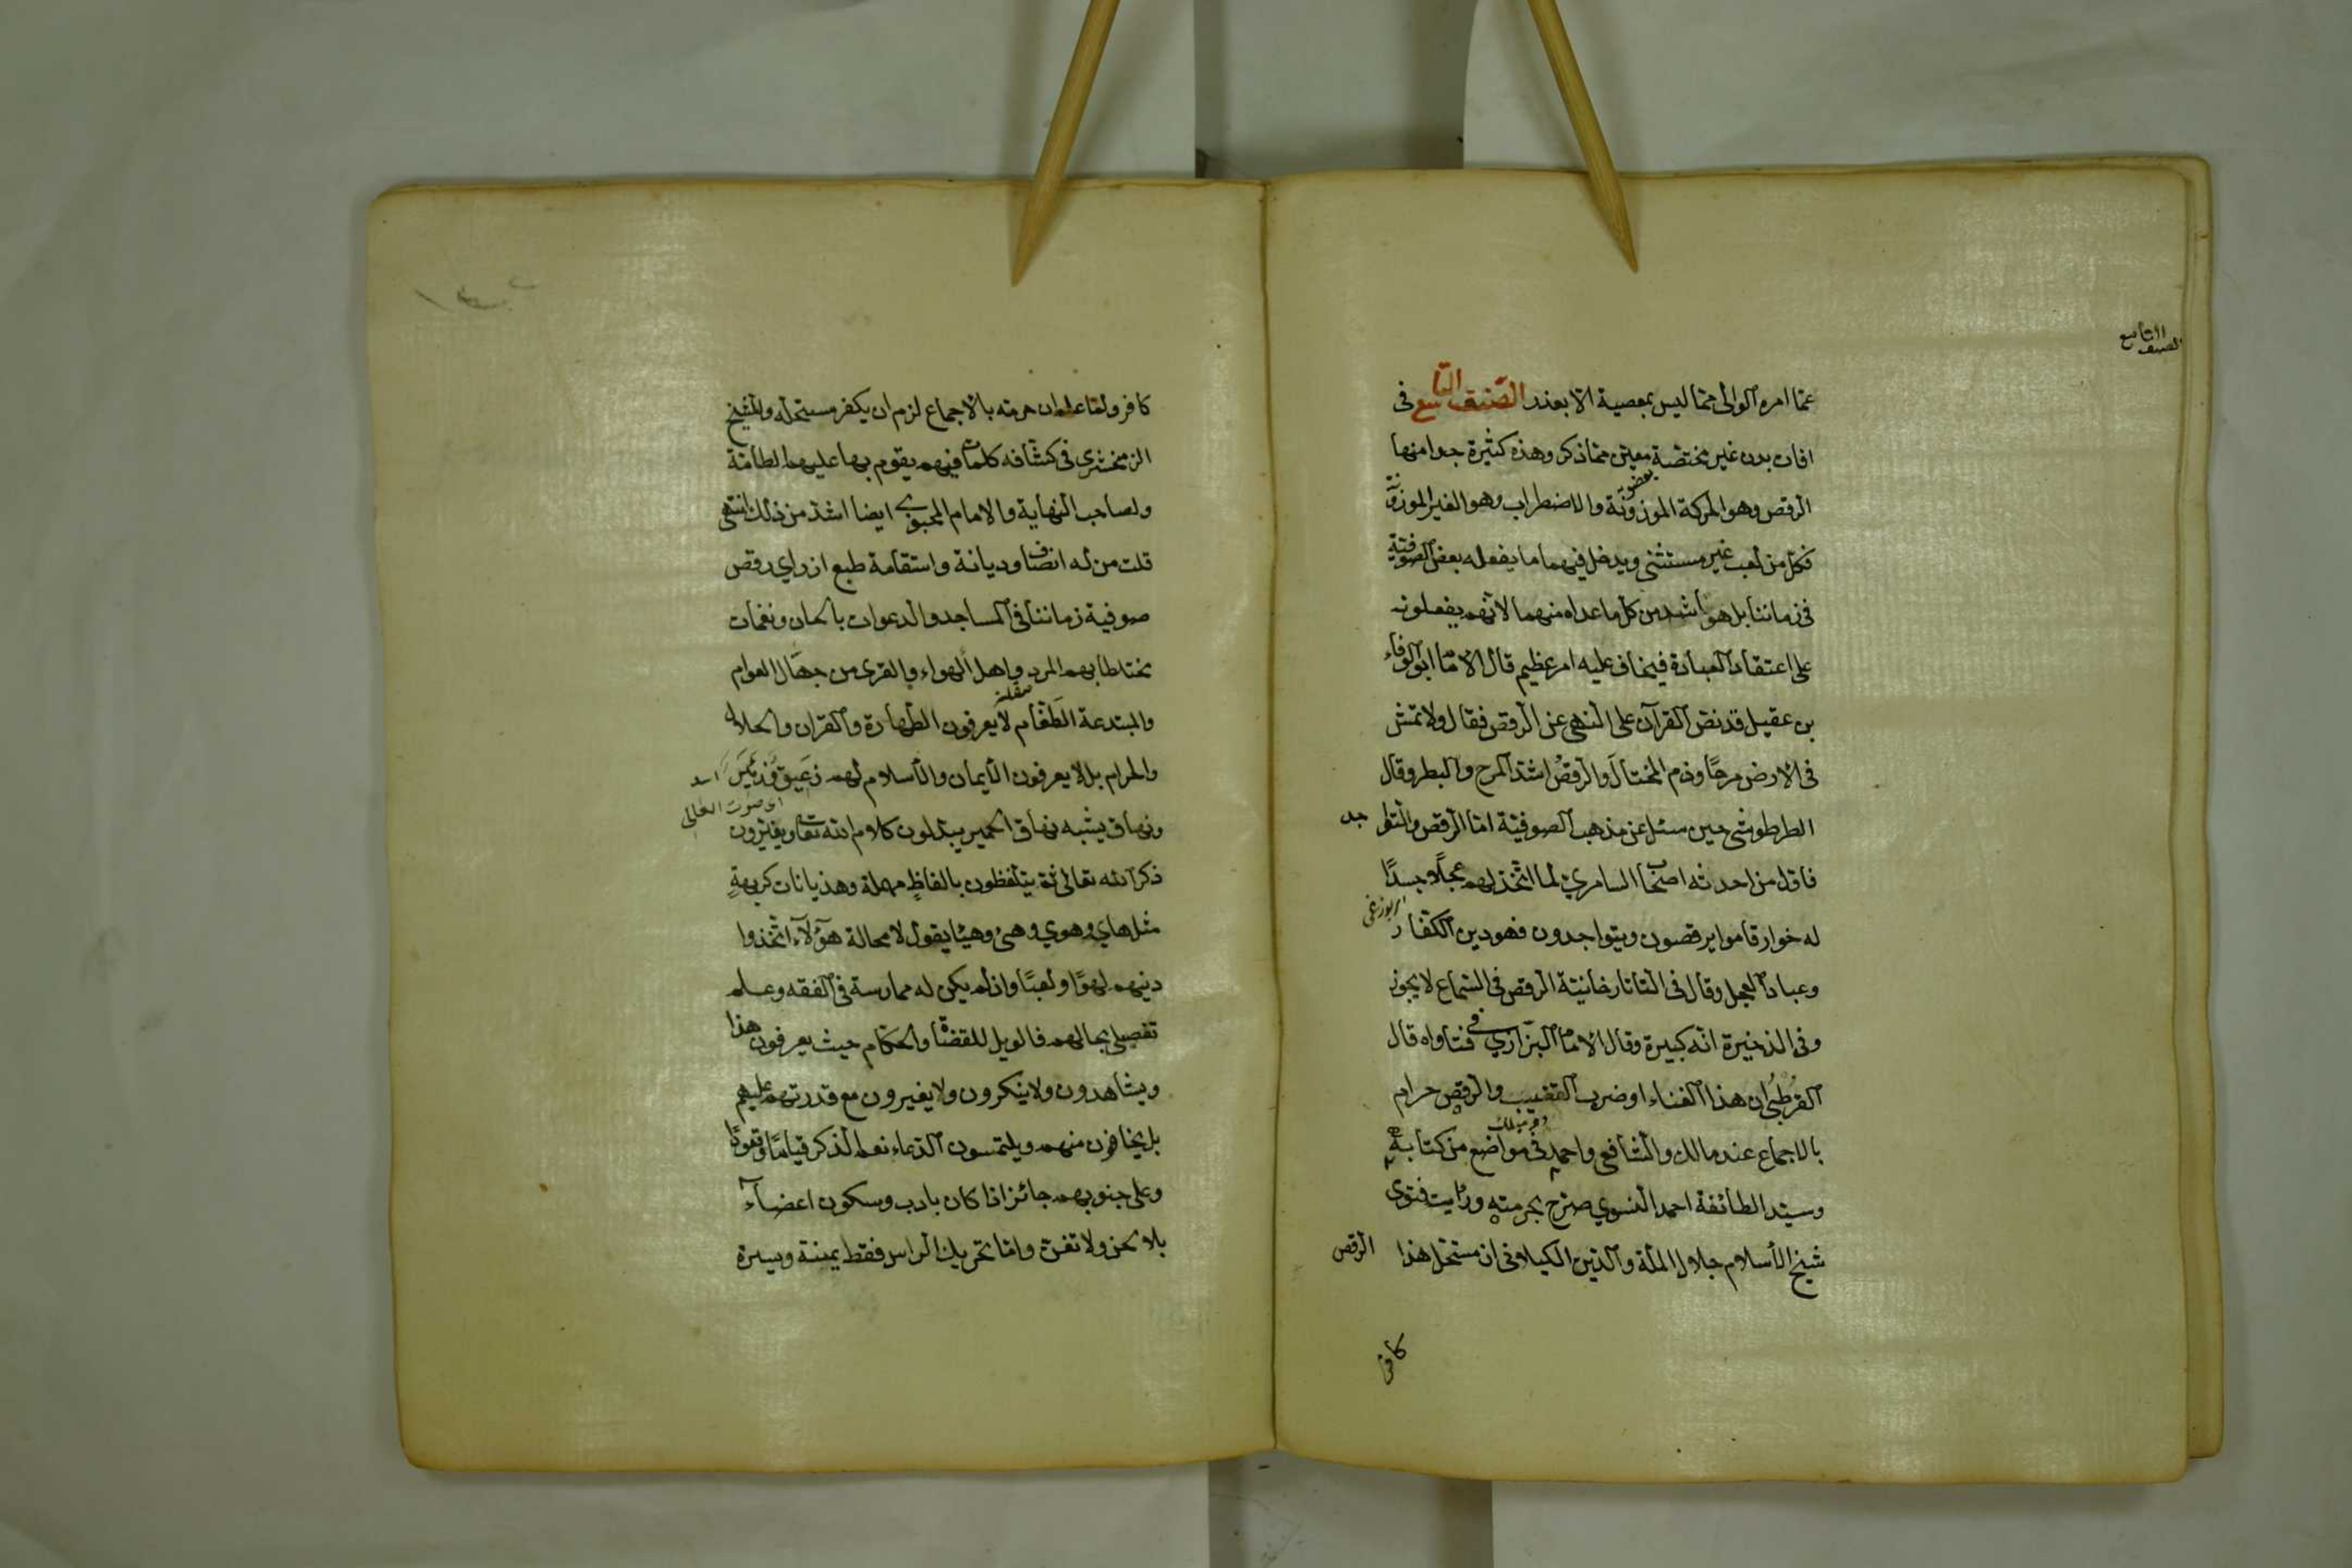 الصنف التاسع
عما امره الوالى مما ليس بمعصية الا بعذر الصّنف التاسع فى
افات بدن غير مختصة بعضو معين مما ذكر وهذه كثيرة جدا منها
الرقص وهو الحركة الموزونة والاضطراب وهو الغير الموزونة
فكل من لعب غير مستثنى ويدخل فيهما ما يفعله بعض الصوفيّة
فى زماننا بل هو اشد من كل ما عداه منهما لانهم يفعلونه
على اعتقاد العبادة فيخاف عليه امر عظيم قال الامام ابو الوفاء
بن عقيل قد نص القرآن على النهى عن الرقص فقال ولا تمش
فى الارض مرحًا وذم المختال والرقصُ اشد المرح والبطر وقال
الطرطوشى حين سئل عن مذهب الصوفيّة امّا الرقص والتواجد
فاول من احدثه اصحاب السامريّ لما اتّخذ لهم عجلًا جسدًا
له خوار قاموا يرقصون ويتواجدون فهو دين الكفّار
وعباد العجل وقال فى التاتارخانيّة الرقص فى السّماع لا يجوز
وفى الذخيرة انّه كبيرة وقال الامام البزّازي فى فتاواه قال
القُرطُبُىّ ان هذا الغناء او ضرب القضيب والرقص حرام
بالاجماع عند مالك والشافعى واحمد فى مواضع من كتابه
وسيّد الطائفة احمد النسوي صرّح بحرمته ورايت فتوى
شيخ الأسلام جلال الملّة والدّين الكيلانى ان مستحلّ هذا الرقص
كافر
كافر ولمّا علم ان حرمته بالاجماع لزم ان يكفر مستحلّه وللشيخ
الزمخشرى فى كشّافه كلمات فيهم يقوم بها عليهم الطامّة
ولصاحب النّهاية والامام المحبوبى ايضا اشدّ من ذلك انتهى
قلت من له انصاف وديانة واستقامة طبع اذ راي رقص
صوفية زماننا فى المساجد والدعوات بالحان ونغمات
مختلطا بهم المرد واهل الهواء والقرى من جهّال العوام
والمبتدعة الطَّغام لا يعرفون الطهارة والقران والحلال
والحرام بل لا يعرفون الأيمان والأسلام لهم زعيق وزئير
اى صوت العالى
ونهاق يشبه نهاق الحمير يبدّلون كلام الله تعا ويغيّرون
ذكر الله تعالى ثم يتلفظون بالفاظٍ مهملة وهذيانات كريهةٍ
مثل هاي وهوي وهىْ وهيا يقول لا محالة هؤلآء اتّخذوا
دينهم لهوًا ولعبًا وان لم يكن له ممارسة فى الفقه وعلم
تفصيلى بحالهم فالويل للقضاة والحكّام حيث يعرفون هذا
ويشاهدون ولا ينكرون ولا يغيرون مع قدرتهم عليهم
بل يخافون منهم ويلتمسون الدّعاء نعم الذكر قيامًا وقعودًا
وعلى جنوبهم جائز اذا كان بادب وسكون اعضآء
بلا لحن ولا تغنّ وامّا تحريك الراس فقط يمنة ويسرة